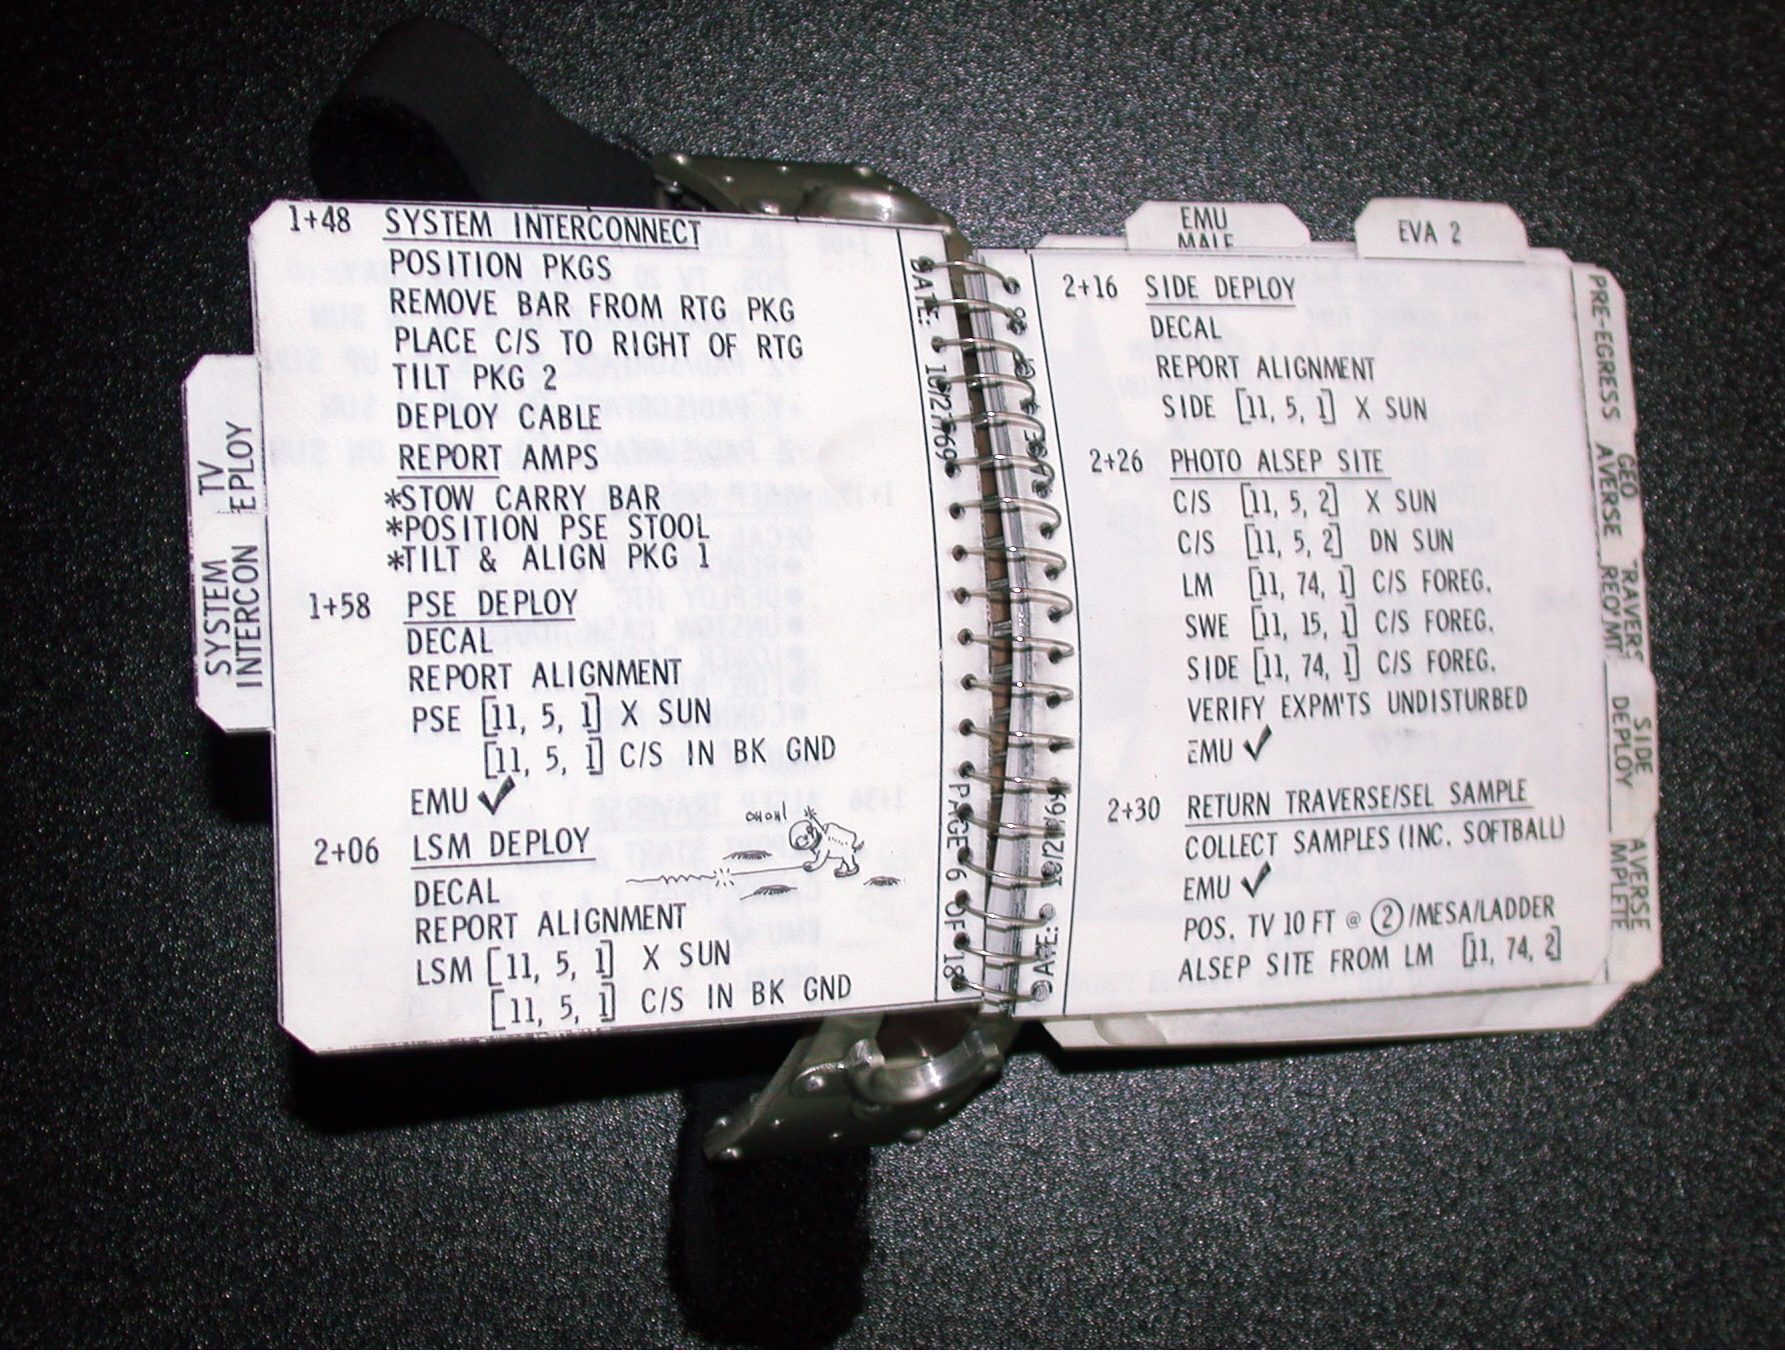 1+48 SYSTEM INTERCONNECT
POSITION PKGS
REMOVE BAR FROM RTG PKG
PLACE C/S TO RIGHT OF RTG
TILT PKG 2
DEPLOY CABLE
REPORT AMPS
*STOW CARRY BAR
*POSITION PSE STOOL
*TILT & ALIGN PKG 1
1+58 PSE DEPLOY
DECAL
REPORT ALIGNMENT
PSE [11, 5, 1] X SUN
[11, 5, 1] C/S IN BK GND
EMU ✓
OHOH!
2+06 LSM DEPLOY
DECAL
REPORT ALIGNMENT
LSM [11, 5, 1] X SUN
[11, 5, 1] C/S IN BK GND
TV
EPLOY
SYSTEM
INTERCON
DATE: 10/27/69
PAGE 6 OF 18
EMU
MALF
EVA 2
2+16 SIDE DEPLOY
DECAL
REPORT ALIGNMENT
SIDE [11, 5, 1] X SUN
2+26 PHOTO ALSEP SITE
C/S [11, 5, 2] X SUN
C/S [11, 5, 2] DN SUN
LM [11, 74, 1] C/S FOREG.
SWE [11, 15, 1] C/S FOREG.
SIDE [11, 74, 1] C/S FOREG.
VERIFY EXPM'TS UNDISTURBED
EMU ✓
2+30 RETURN TRAVERSE/SEL SAMPLE
COLLECT SAMPLES (INC. SOFTBALL)
EMU ✓
POS. TV 10 FT @ 2/MESA/LADDER
ALSEP SITE FROM LM [11, 74, 2]
PRE-EGRESS
GEO
AVERSE
TRAVERS
REQ'MT
SIDE
DEPLOY
AVERSE
MPLETE